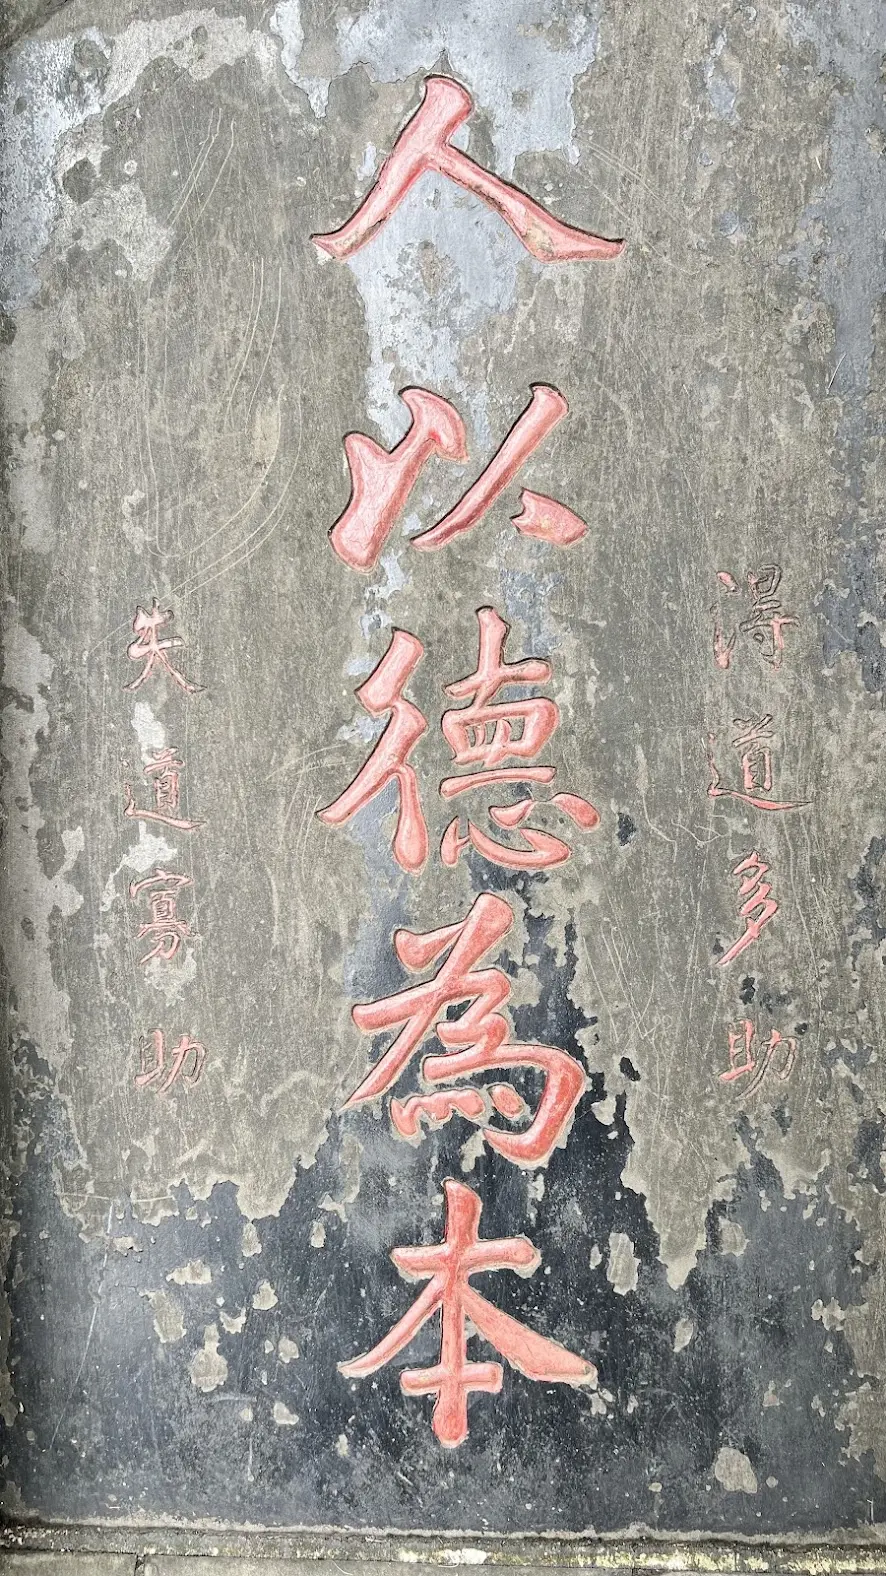 得道多助
人以德為本
失道寡助